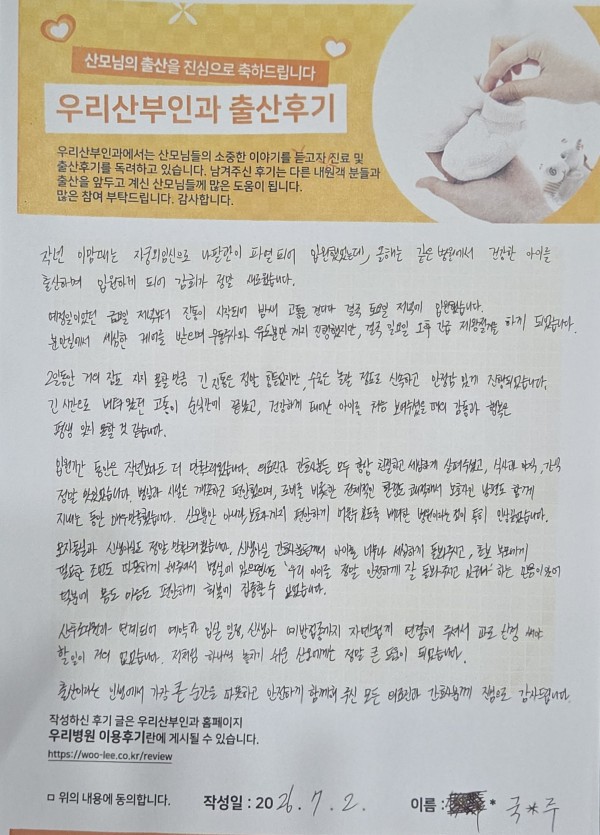 산모님의 출산을 진심으로 축하드립니다
우리산부인과 출산후기
우리산부인과에서는 산모님들의 소중한 이야기를 듣고자 진료 및
출산후기를 독려하고 있습니다. 남겨주신 후기는 다른 내원객 분들과
출산을 앞두고 계신 산모님들께 많은 도움이 됩니다.
많은 참여 부탁드립니다. 감사합니다.
작년 이맘때는 자궁외임신으로 나팔관이 파열되어 입원했었는데, 올해는 같은 병원에서 건강한 아이를
출산하며 입원하게 되어 감회가 정말 새로웠습니다.
예정일이었던 금요일 저녁부터 진통이 시작되어 밤새 고통을 견디다 결국 토요일 저녁에 입원했습니다.
분만실에서 세심한 케어를 받으며 무통주사와 유도분만까지 진행했지만, 결국 일요일 오후 긴급 제왕절개를 하게 되었습니다.
2일동안 거의 잠도 자지 못할 만큼 긴 진통은 정말 힘들었지만, 수술은 놀랄 정도로 신속하고 안정감 있게 진행되었습니다.
긴 시간으로 버텨왔던 고통이 순식간에 끝났고, 건강하게 태어난 아이를 처음 보여주셨을 때의 감동과 행복은
평생 잊지 못할 것 같습니다.
입원기간 동안은 작년보다도 더 만족스러웠습니다. 의료진과 간호사분들 모두 항상 친절하고 세심하게 살펴주셨고, 식사와 간식
정말 맛있었습니다. 병실과 시설은 깨끗하고 편안했으며, 비롯한 전체적인 환경도 쾌적해서 보호자인 남편도 함께
지내는 동안 매우 만족했습니다. 산모뿐만 아니라 보호자까지 편안하게 머물수 있도록 배려한 병원이라는 점이 특히 인상깊었습니다.
모자동실과 신생아실도 정말 만족스러웠습니다. 신생아실 간호사분들께서 아이를 너무나 세심하게 돌봐주시고, 초보 부모에게
필요한 조언도 따뜻하게 해주셔서 병실에 있으면서도 '우리 아이를 정말 안전하게 잘 돌봐주시고 있구나' 하는 믿음이 있어
덕분에 몸도 마음도 편안하게 회복에 집중할 수 있었습니다.
산후조리원과 연계되어 예약과 입실 일정, 신생아 예방접종까지 자연스럽게 연결해 주셔서 따로 신경 써야
할 일이 거의 없었습니다. 저처럼 하나씩 놓치기 쉬운 산모에게는 정말 큰 도움이 되었습니다.
출산이라는 인생에서 가장 큰 순간을 따뜻하고 안전하게 함께해 주신 모든 의료진과 간호사분께 진심으로 감사드립니다.
작성하신 후기 글은 우리산부인과 홈페이지
우리병원 이용후기란에 게시될 수 있습니다.
https://woo-lee.co.kr/review
ㅁ 위의 내용에 동의합니다. 작성일 : 2026. 7. 2. 이름 : * 국*주